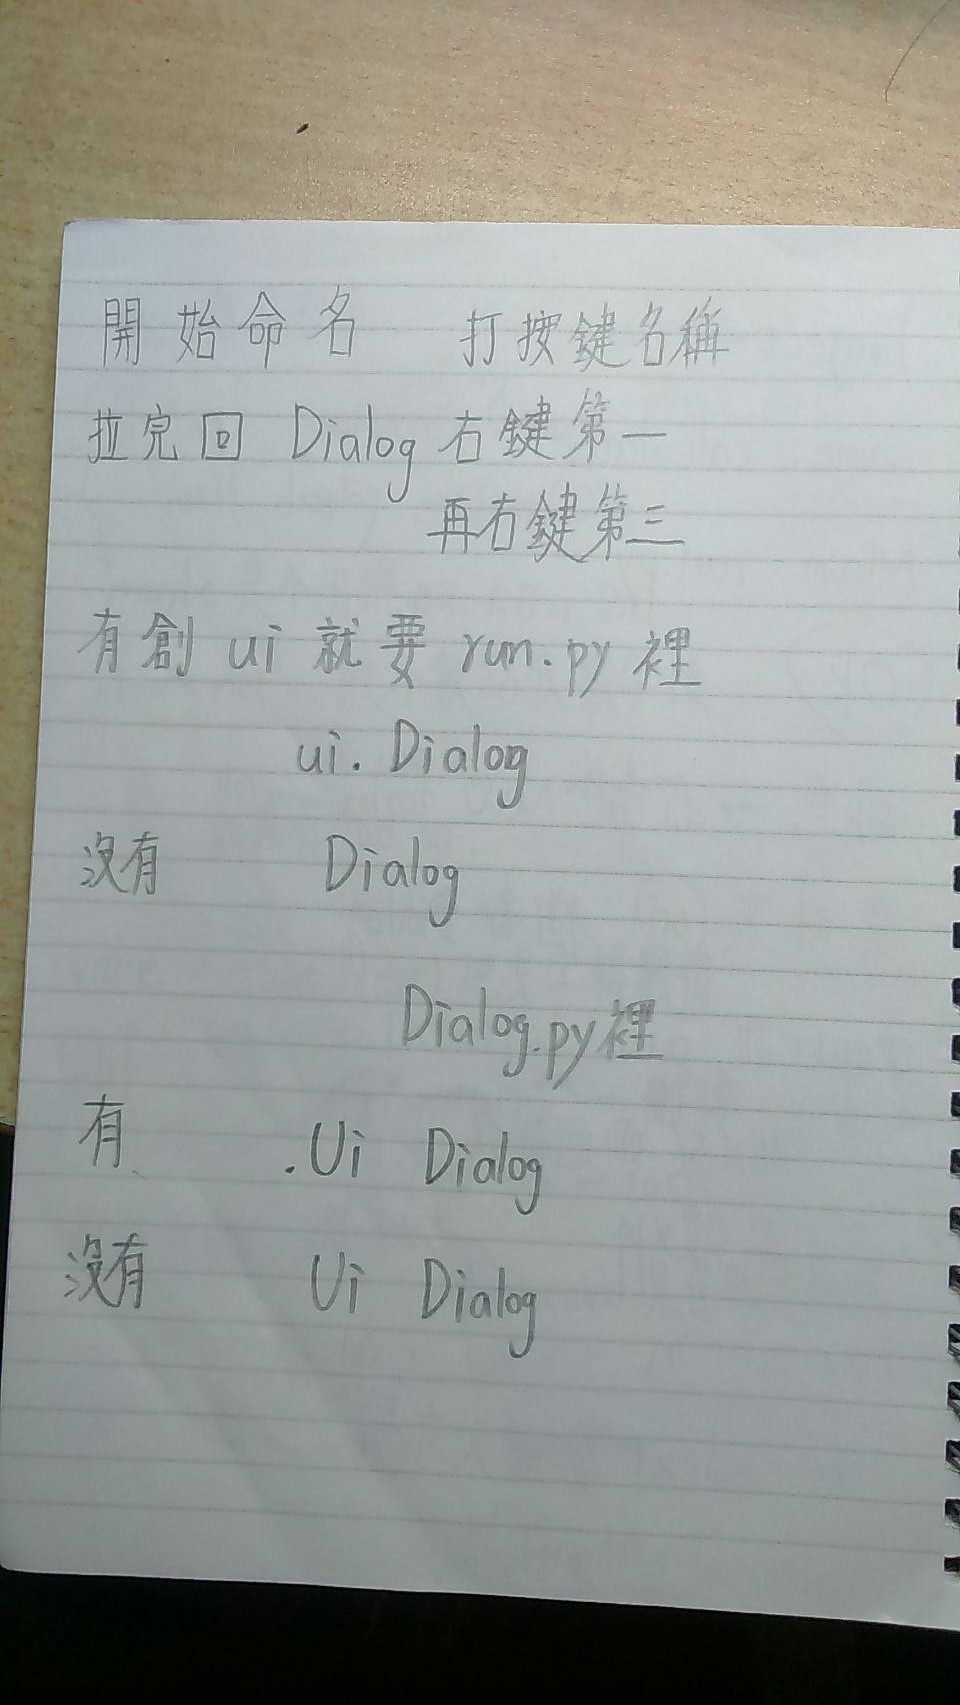 開始命名 打按鍵名稱
拉完回 Dialog 右鍵第一
再右鍵第三
有創 ui 就要 run.py 裡
ui. Dialog
沒有 Dialog
Dialog.py裡
有 .Ui Dialog
沒有 Ui Dialog